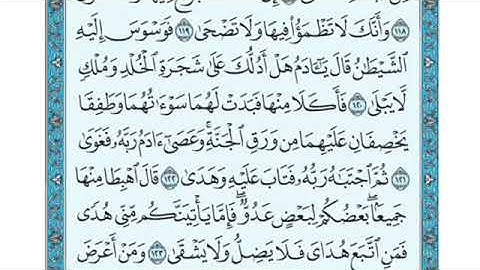 ١١٨ وَأَنَّكَ لَا تَظْمَؤُا۟ فِيهَا وَلَا تَضْحَىٰ ١١٩ فَوَسْوَسَ إِلَيْهِ
ٱلشَّيْطَٰنُ قَالَ يَٰٓـَٔادَمُ هَلْ أَدُلُّكَ عَلَىٰ شَجَرَةِ ٱلْخُلْدِ وَمُلْكٍ
لَّا يَبْلَىٰ ١٢٠ فَأَكَلَا مِنْهَا فَبَدَتْ لَهُمَا سَوْءَٰتُهُمَا وَطَفِقَا
يَخْصِفَانِ عَلَيْهِمَا مِن وَرَقِ ٱلْجَنَّةِ ۚ وَعَصَىٰٓ ءَادَمُ رَبَّهُۥ فَغَوَىٰ
١٢١ ثُمَّ ٱجْتَبَٰهُ رَبُّهُۥ فَتَابَ عَلَيْهِ وَهَدَىٰ ١٢٢ قَالَ ٱهْبِطَا مِنْهَا
جَمِيعًۢا ۖ بَعْضُكُمْ لِبَعْضٍ عَدُوٌّ ۖ فَإِمَّا يَأْتِيَنَّكُم مِّنِّى هُدًى
فَمَنِ ٱتَّبَعَ هُدَاىَ فَلَا يَضِلُّ وَلَا يَشْقَىٰ ١٢٣ وَمَنْ أَعْرَضَ